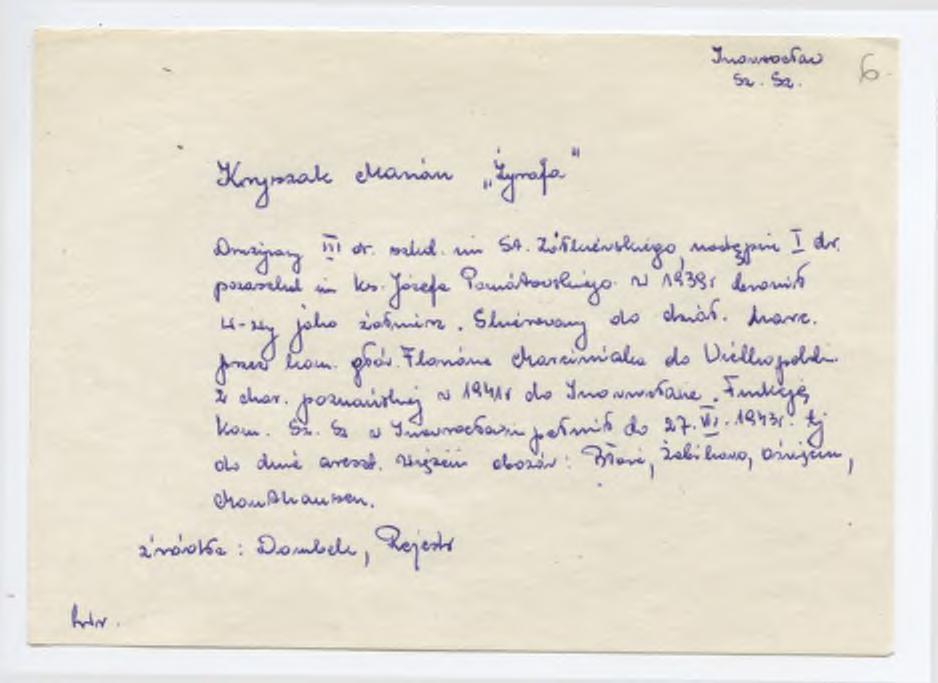 Inowrocław 6
Sz. Sz.
Kryszak Marian „Żyrafa”
Drużynowy III dr. szkol. im St. Żółkiewskiego, następnie I dr.
pozaszkol im ks. Józefa Poniatowskiego. W 1939r bronił
jako żołnierz. Skierowany do dział. harc.
przez kom. głów. Floriana Marciniaka do Wielkopolski
z chor. poznańskiej w 1941r do Inowrocławia. Funkcję
kom. Sz. Sz w Inowrocławiu pełnił do 27.VII.1943r. tj
do dnia areszt. Więzień obozów: Błonie, Żabikowo, Oświęcim,
Mauthausen.
źródła: Dombek, Rejestr